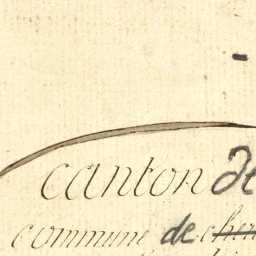 canton de
commune de